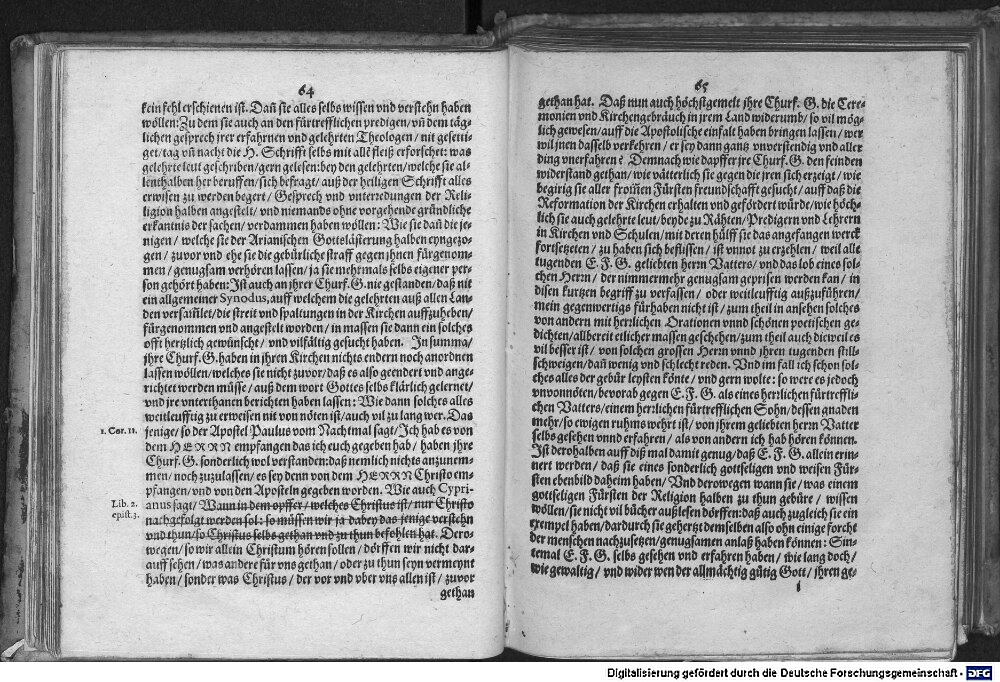 64
kein fehl erschienen ist. Dañ sie alles selbs wissen vnd verstehn haben
wöllen: Zu dem sie auch an den fürtrefflichen predigen/ vñ dem täg-
lichen gesprech jrer erfahrnen vnd gelehrten Theologen/ nit gesetti-
get/ tag vñ nacht die H. Schrifft selbs mit allē fleiß erforschet: was
gelehrte leut geschriben/ gern gelesen: bey den gelehrten/ welche sie al-
lenthalben her beruffen/ sich befragt/ auß der heiligen Schrifft alles
erwisen zu werden begert/ Gesprech vnd vnterredungen der Reli-
ligion halben angestelt/ vnd niemands ohne vorgehende gründliche
erkantnis der sachen/ verdammen haben wöllen: Wie sie dañ die je-
nigen/ welche sie der Arianischen Gottslästerung halben eyngezo-
gen/ zuvor vnd ehe sie die gebürliche straff gegen jhnen fürgenom-
men/ genugsam verhören lassen/ ja sie mehtmals selbs eigener per-
son gehört haben: Ist auch an jhrer Churf. G. nie gestanden/ daß nit
ein allgemeiner Synodus, auff welchem die gelehrten auß allen Lan-
den versamlet/ die streit vnd spaltungen in der Kirchen auffzuheben/
fürgenommen vnd angestelt worden/ in massen sie dann ein solches
offt hertzlich gewünscht/ vnd vilfältig gesucht haben. In summa/
jhre Churf. G. haben in jhren Kirchen nichts endern noch anordnen
lassen wöllen/ welches sie nicht zuvor/ daß es also geendert vnd ange-
richtet werden müsse/ auß dem wort Gottes selbs klärlich gelernet/
vnd jre vnterthanen berichten haben lassen: Wie dann solches alles
weitleufftig zu erweisen nit von nöten ist/ auch vil zu lang wer. Das
1. Cor. 11.
jenige/ so der Apostel Paulus vom Nachtmal sagt/ Ich hab es von
dem HERRN empfangen das ich euch gegeben hab/ haben jhre
Churf. G. sonderlich wol verstanden: daß nemlich nichts anzunem-
men/ noch zuzulassen/ es sey denn von dem HERRN Christo em-
pfangen/ vnd von den Aposteln gegeben worden. Wie auch Cypri-
Lib. 2.
epist. 3.
anus sagt/ Wann in dem opffer/ welches Christus ist/ nur Christo
nachgefolgt werden sol: so müssen wir ja dabey das jenige verstehn
vnd thun/ so Christus selbs gethan vnd zu thun befohlen hat. Dero-
wegen/ so wir allein Christum hören sollen/ dörffen wir nicht dar-
auff sehen/ was andere für vns gethan/ oder zu thun seyn vermeynt
haben/ sonder was Christus/ der vor vnd vber vns allen ist/ zuvor
gethan
65
gethan hat. Daß nun auch höchstgemelt jhre Churf. G. die Cere-
monien vnd Kirchengebräuch in jrem Land widerumb/ so vil mög-
lich gewesen/ auff die Apostolische einfalt haben bringen lassen/ wer
wil jnen dasselb verkehren/ er sey dann gantz vnverstendig vnd aller
ding vnerfahren? Demnach wie dapffer jre Churf. G. den feinden
widerstand gethan/ wie vätterlich sie gegen die jren sich erzeigt/ wie
begirig sie aller from̃en Fürsten freundschafft gesucht/ auff daß die
Reformation der Kirchen erhalten vnd gefördert würde/ wie höch-
lich sie auch gelehrte leut/ beyde zu Rähten/ Predigern vnd Lehrern
in Kirchen vnd Schulen/ mit deren hülff sie das angefangen werck
fortsetzeten/ zu haben sich beflissen/ ist vnnot zu erzehlen/ weil alle
tugenden E. F. G. geliebten herrn Vatters/ vnd das lob eines sol-
chen Herrn/ der nimmermehr genugsam geprisen werden kan/ in
disen kurtzen begriff zu verfassen/ oder weitleufftig außzuführen/
mein gegenwertigs fürhaben nicht ist/ zum theil in ansehen solches
von andern mit herlichen Orationen vnnd schönen poetischen ge-
dichten/ allbereit etlicher massen geschehen/ zum theil auch dieweil es
vil besser ist/ von solchen grossen Herrn vnnd jhren tugenden still-
schweigen/ dañ wenig vnd schlecht reden. Vnd im fall ich schon sol-
ches alles der gebür leysten könte/ vnd gern wolte: so were es jedoch
vnvonnöten/ bevorab gegen E. F. G. als eines herrlichen fürtreffli-
chen Vatters/ einem herrlichen fürtrefflichen Sohn/ dessen gnaden
mehr/ so ewigen ruhms wehrt ist/ von jhrem geliebten herrn Vatter
selbs gesehen vnnd erfahren/ als von andern ich hab hören können.
Ist derohalben auff diß mal damit genug/ daß E. F. G. allein erin-
nert werden/ daß sie eines sonderlich gottseligen vnd weisen Für-
sten ebenbild daheim haben/ Vnd derowegen wann sie/ was einem
gottseligen Fürsten der Religion halben zu thun gebüre/ wissen
wöllen/ sie nicht vil bücher außlesen dörffen: daß auch zugleich sie ein
exempel haben/ dardurch sie gehertzt demselben also ohn einige forcht
der menschen nachzusetzen/ genugsamen anlaß haben können: Sin-
temal E. F. G. selbs gesehen vnd erfahren haben/ wie lang doch/
wie gewaltig/ vnd wider wen der allmächtig gütig Gott/ jhren ge-
Digitalisierung gefördert durch die Deutsche Forschungsgemeinschaft - DFG